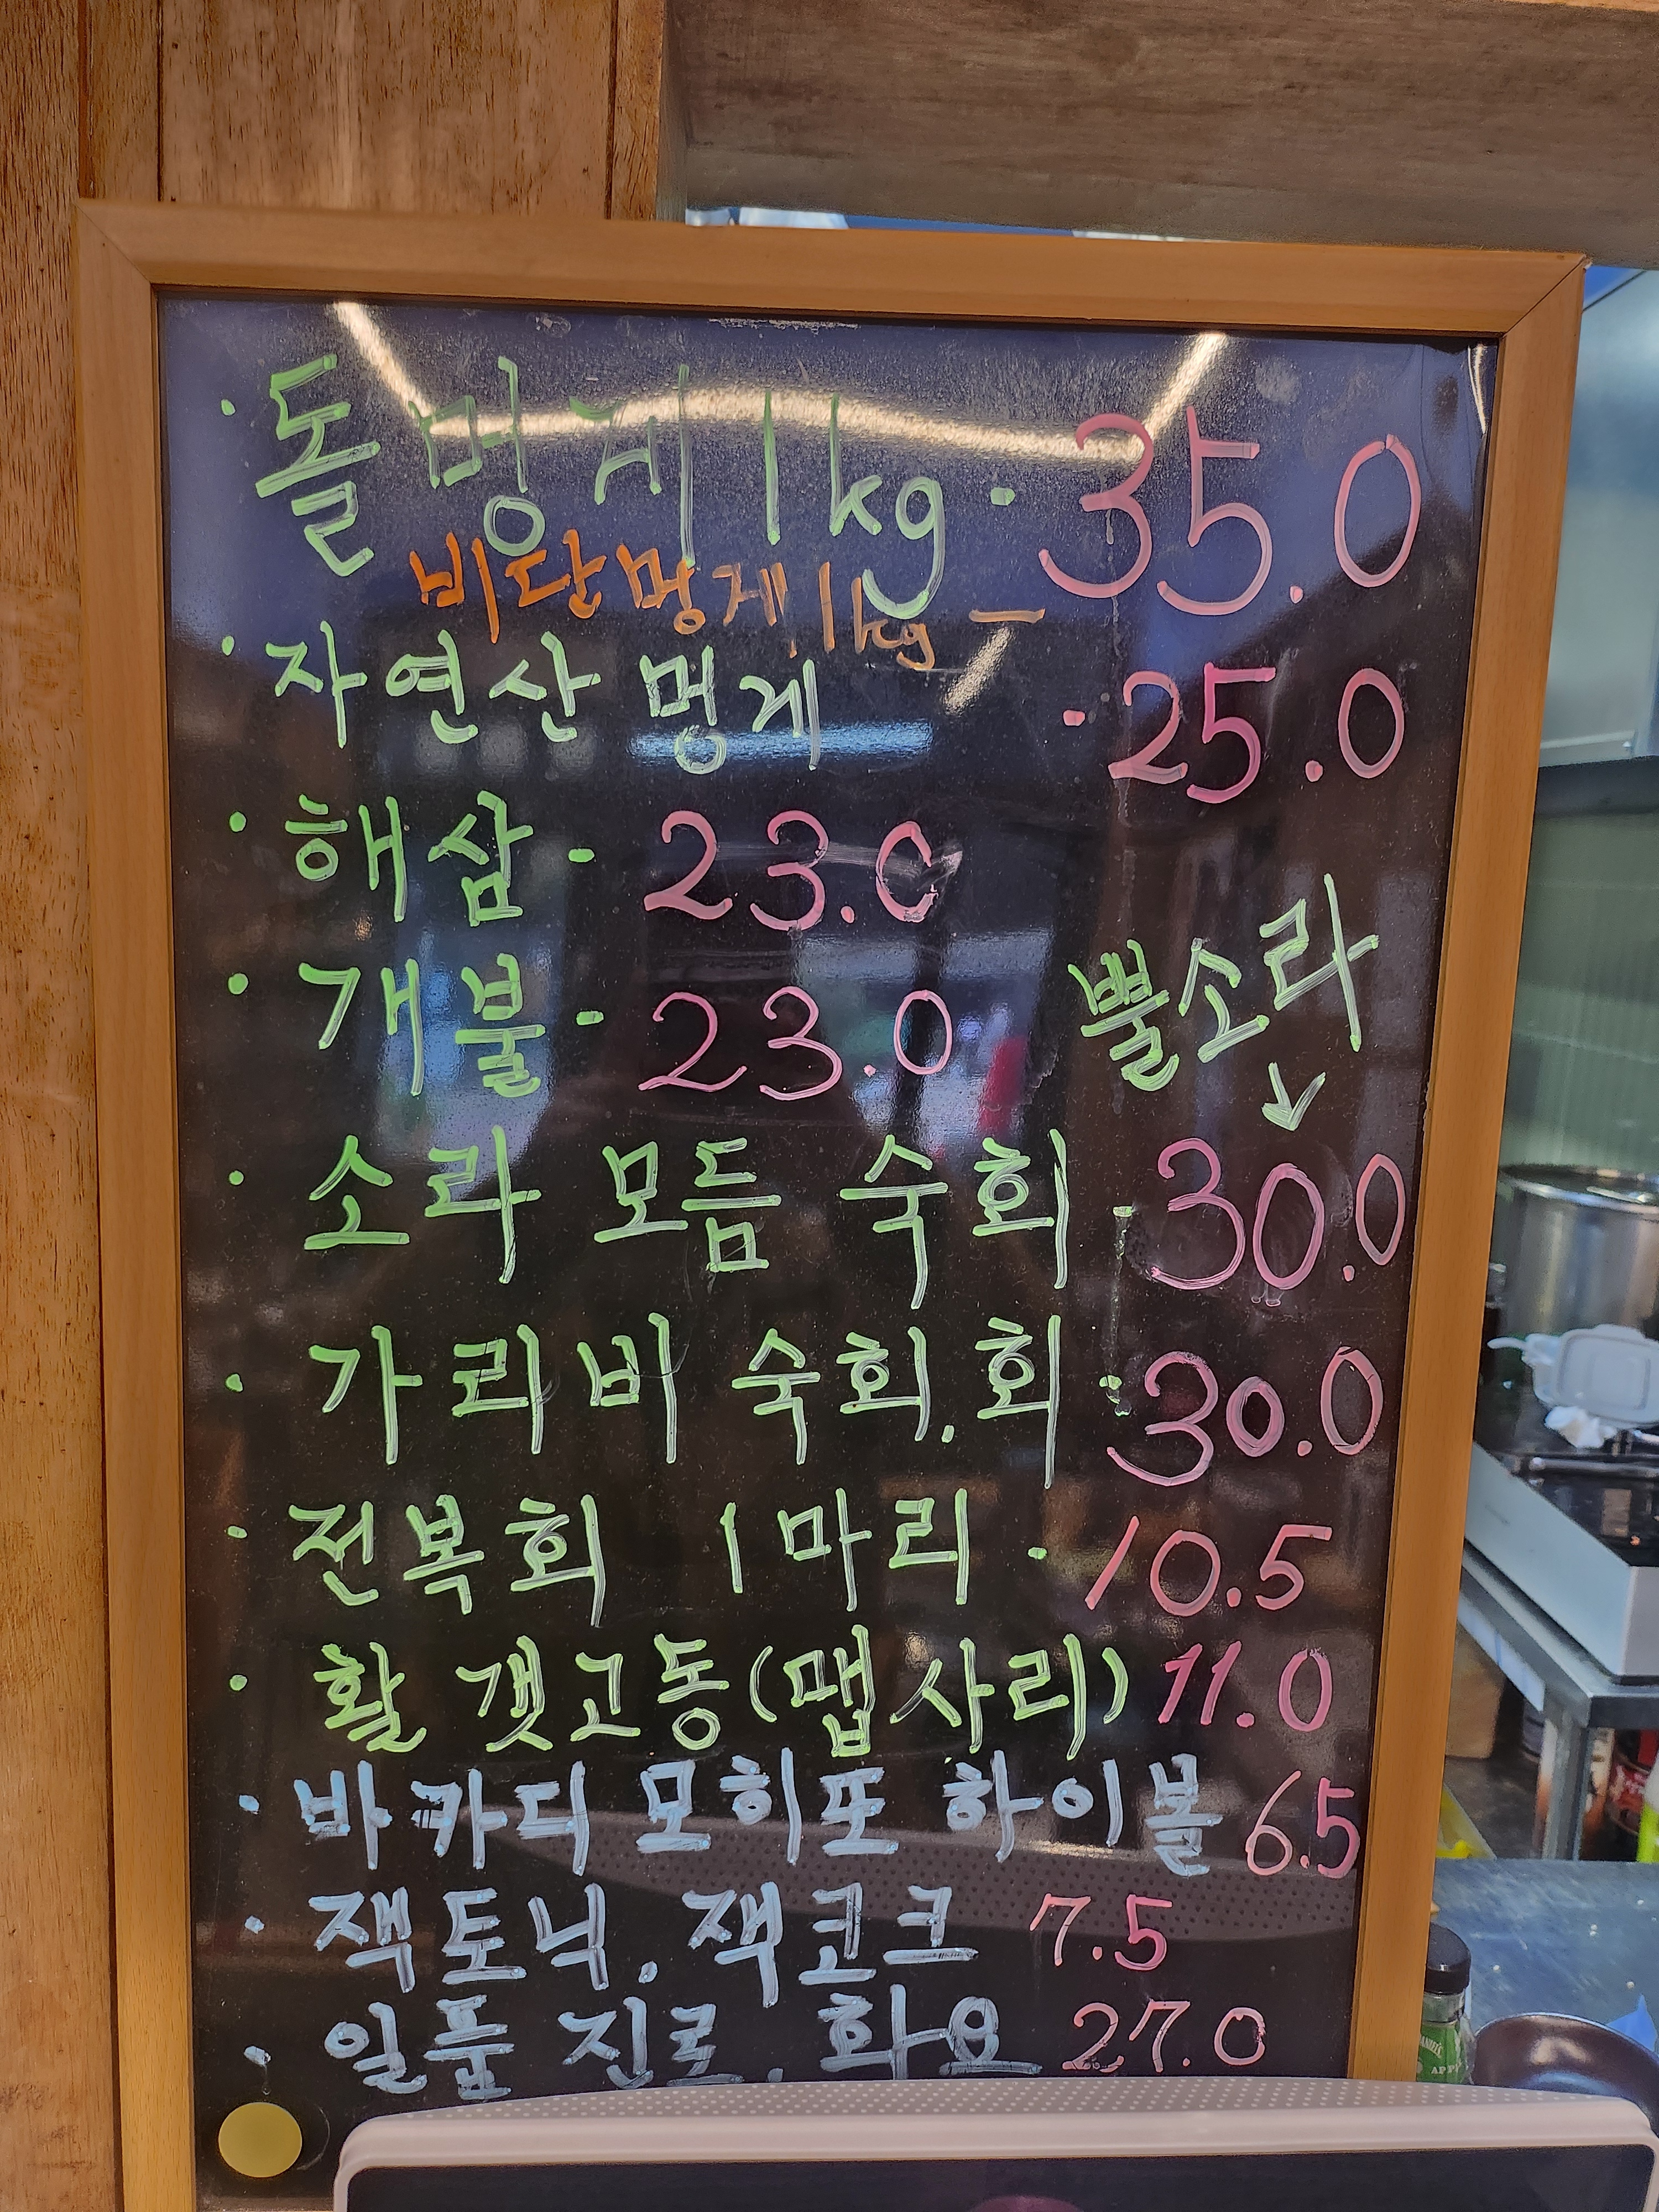 · 돌멍게 1kg · 35.0
비단멍게 1kg —
· 자연산 멍게 · 25.0
· 해삼 · 23.0
· 개불 · 23.0
뿔소라
↓
· 소라 모듬 숙회 · 30.0
· 가리비 숙회. 회 · 30.0
· 전복회 1마리 · 10.5
· 활 갯고동(맵사리) 11.0
· 바카디 모히또 하이볼 6.5
· 잭토닉. 잭코크 7.5
· 일품 진로. 화요 27.0